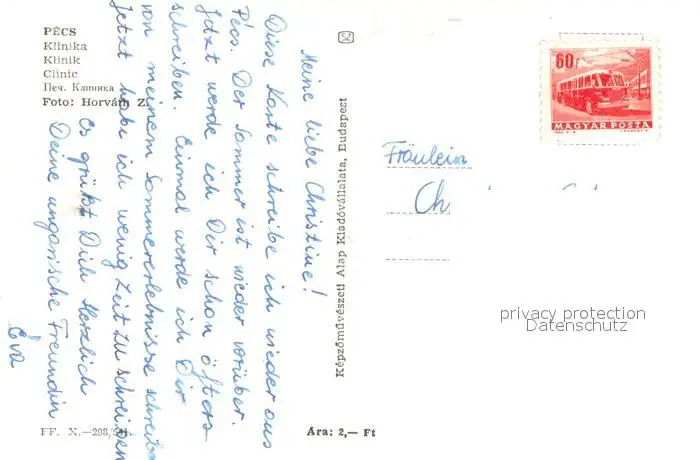 PÉCS
Klinika
Klinik
Clinic
Печ. Клиника
Foto: Horváth Z.
Meine liebe Christine!
Diese Karte schreibe ich wieder aus
Pécs. Der Sommer ist wieder vorüber.
Jetzt werde ich Dir schon öfters
schreiben. Einmal werde ich Dir
von meinem Sommererlebnisse schreiben
Jetzt habe ich wenig Zeit zu schreiben
es grüßt Dich Herzlich
Deine ungarische Freundin
Éva
FF. X.—298/
SZ
Képzőművészeti Alap Kiadóvállalata, Budapest
Ára: 2,— Ft
60f
MAGYAR POSTA
Fräulein
Ch
privacy protection
Datenschutz